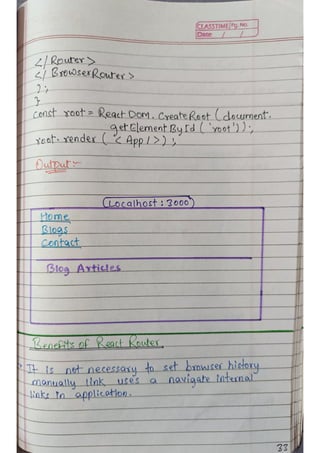 CLASSTIME Pg. No.
Date / /
</ Router>
</ BrowserRouter>
);
}
const root = React Dom. Create Root (document.
getElementById ('root'));
root. render ( < App />);
Output:-
(Localhost : 3000)
Home
Blogs
Contact
Blog Articles
Benefits of React Router
It is not necessary to set browser history
manually link uses a navigate internal
links in application.
33